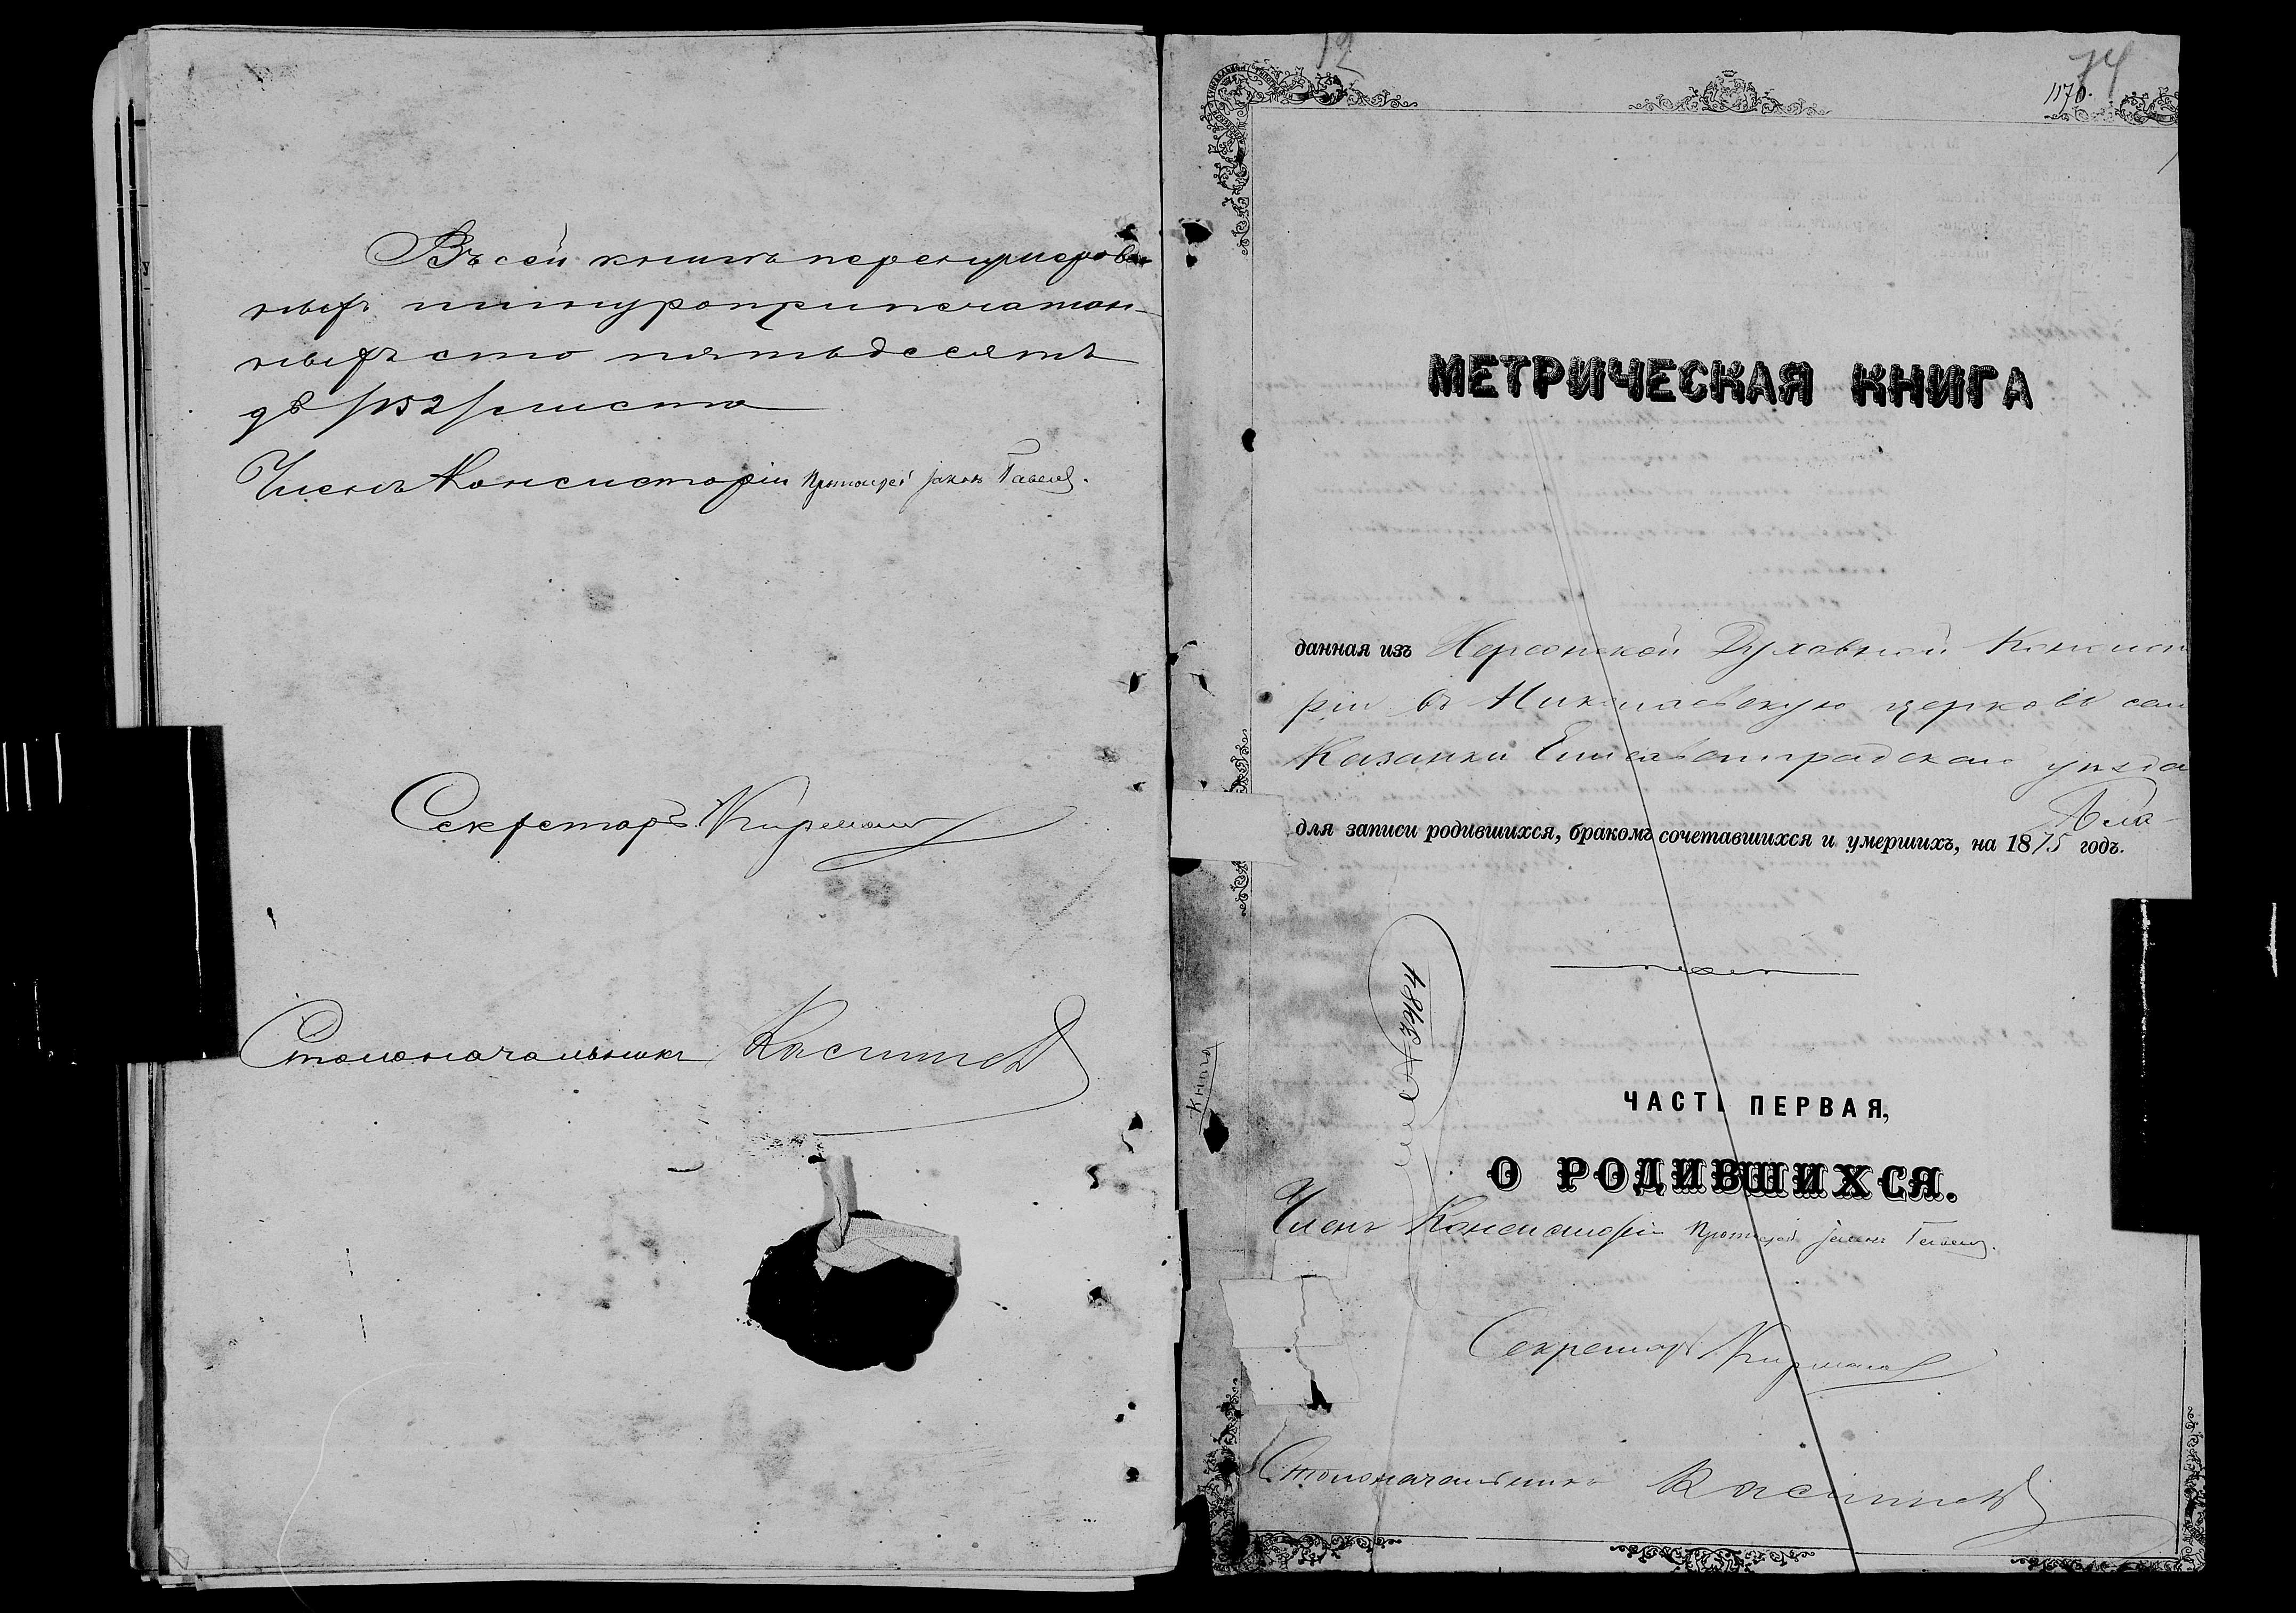 Въ сей книгѣ перенумерован-
ныхъ шнуроприпечатан-
ныхъ сто пятьдесятъ
два /152/ листа
Членъ Консисторіи Протоіерей
Секретарь
Столоначальникъ
12
74
1176.
МЕТРИЧЕСКАЯ КНИГА
данная изъ Херсонской Духовной Консисто
ріи въ Николаевскую церковь села
Казанки Елисаветградскаго уѣзда
для записи родившихся, бракомъ сочетавшихся и умершихъ, на 1875 годъ.
№ 3484
Книга
ЧАСТЬ ПЕРВАЯ,
О РОДИВШИХСЯ.
Членъ Консисторіи Протоіерей
Секретарь
Столоначальникъ